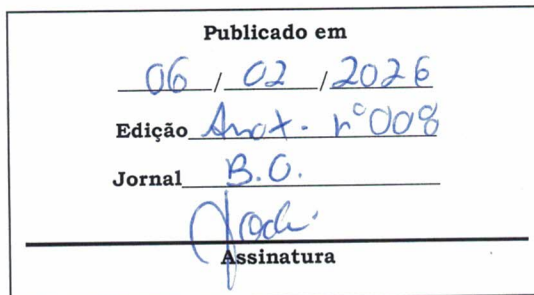 Publicado em
06 / 02 / 2026
Edição nº 008
Jornal B.O.
Assinatura